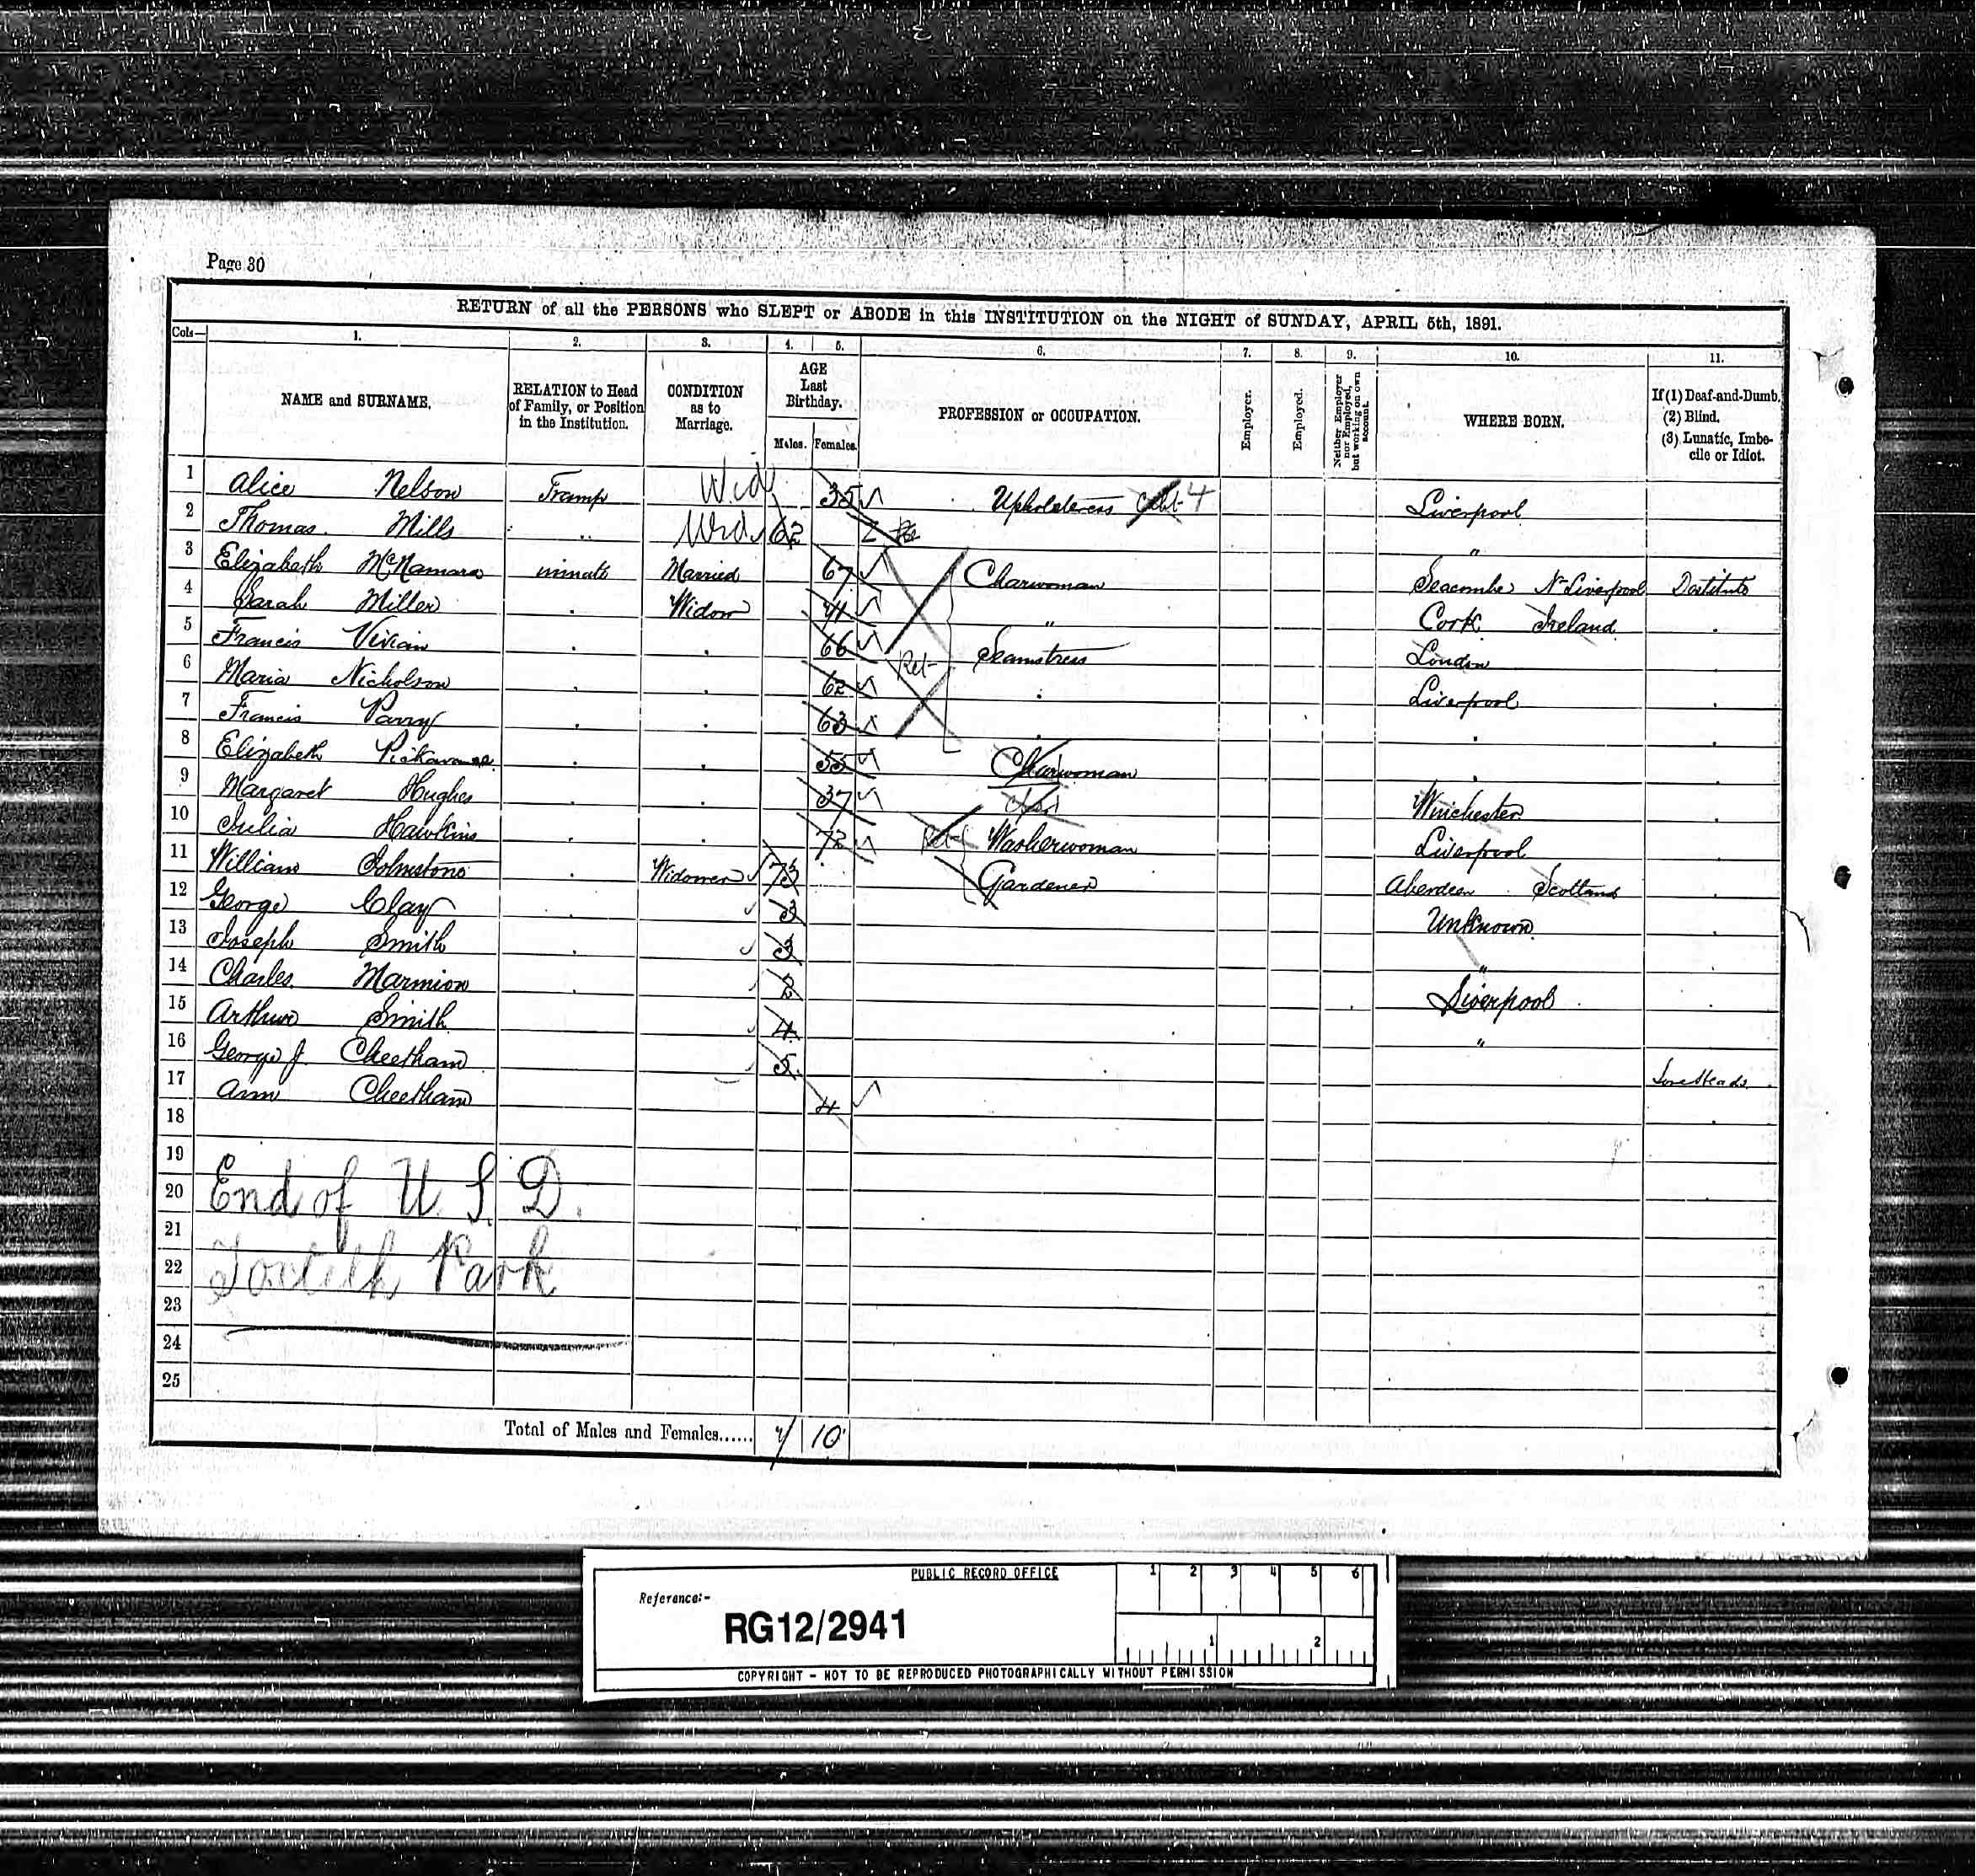 Page 30
RETURN of all the PERSONS who SLEPT or ABODE in this INSTITUTION on the NIGHT of SUNDAY, APRIL 5th, 1891.
Cols— 1. 2. 3. 4. 5. 6. 7. 8. 9. 10. 11.
NAME and SURNAME. RELATION to Head of Family, or Position in the Institution. CONDITION as to Marriage. AGE Last Birthday. Males. Females. PROFESSION or OCCUPATION. Employer. Employed. Neither Employer nor Employed, but working on own account. WHERE BORN. If (1) Deaf-and-Dumb. (2) Blind. (3) Lunatic, Imbecile or Idiot.
1 Alice Nelson Tramp Wid 35 Upholsteress 4 Liverpool
2 Thomas Mills " Wid 62 "
3 Elizabeth McNamara inmate Married 67 Charwoman Seacombe Nr Liverpool Destitute
4 Sarah Miller . Widow 41 " Cork Ireland .
5 Francis Vivian . . 66 Ret Seamstress London .
6 Maria Nicholson . . 62 . Liverpool .
7 Francis Parry . . 63 . . .
8 Elizabeth . . 55 Charwoman . .
9 Margaret Hughes . . 37 Winchester .
10 Julia Hawkins . . 72 Ret Washerwoman Liverpool .
11 William Johnstone . Widower 73 Gardener Aberdeen Scotland .
12 George Clay . 3 Unknown .
13 Joseph Smith . 3 " .
14 Charles Marmion . 2 Liverpool .
15 Arthur Smith 4 "
16 George J Cheetham 5 Sore Heads.
17 Ann Cheetham 4 .
18
19
20 End of U. S. D.
21
22 Toxteth Park
23
24
25
Total of Males and Females...... 7 10
PUBLIC RECORD OFFICE 1 2 3 4 5 6
Reference:-
RG12/2941
1 2
COPYRIGHT - NOT TO BE REPRODUCED PHOTOGRAPHICALLY WITHOUT PERMISSION